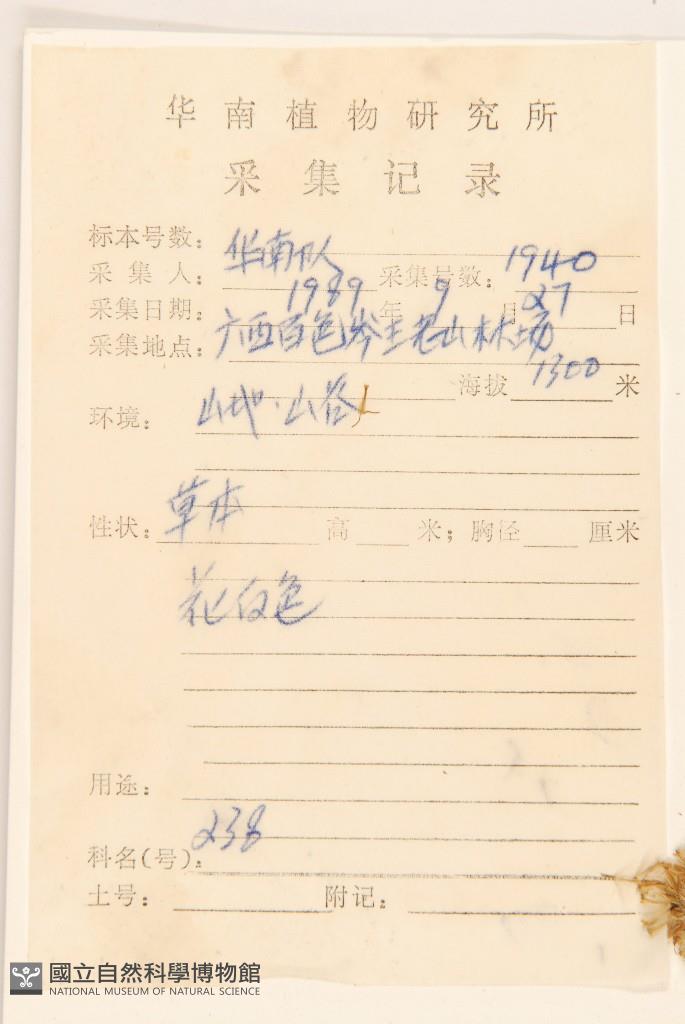 华南植物研究所
采集记录
标本号数：
采集人： 华南队 采集号数：1940
采集日期： 1989年9月27日
采集地点： 广西百色岑王老山林场
海拔1300米
环境： 山地·山谷
性状： 草本 高 米；胸径 厘米
花白色
用途：
科名(号)： 238
土号： 附记：
國立自然科學博物館
NATIONAL MUSEUM OF NATURAL SCIENCE